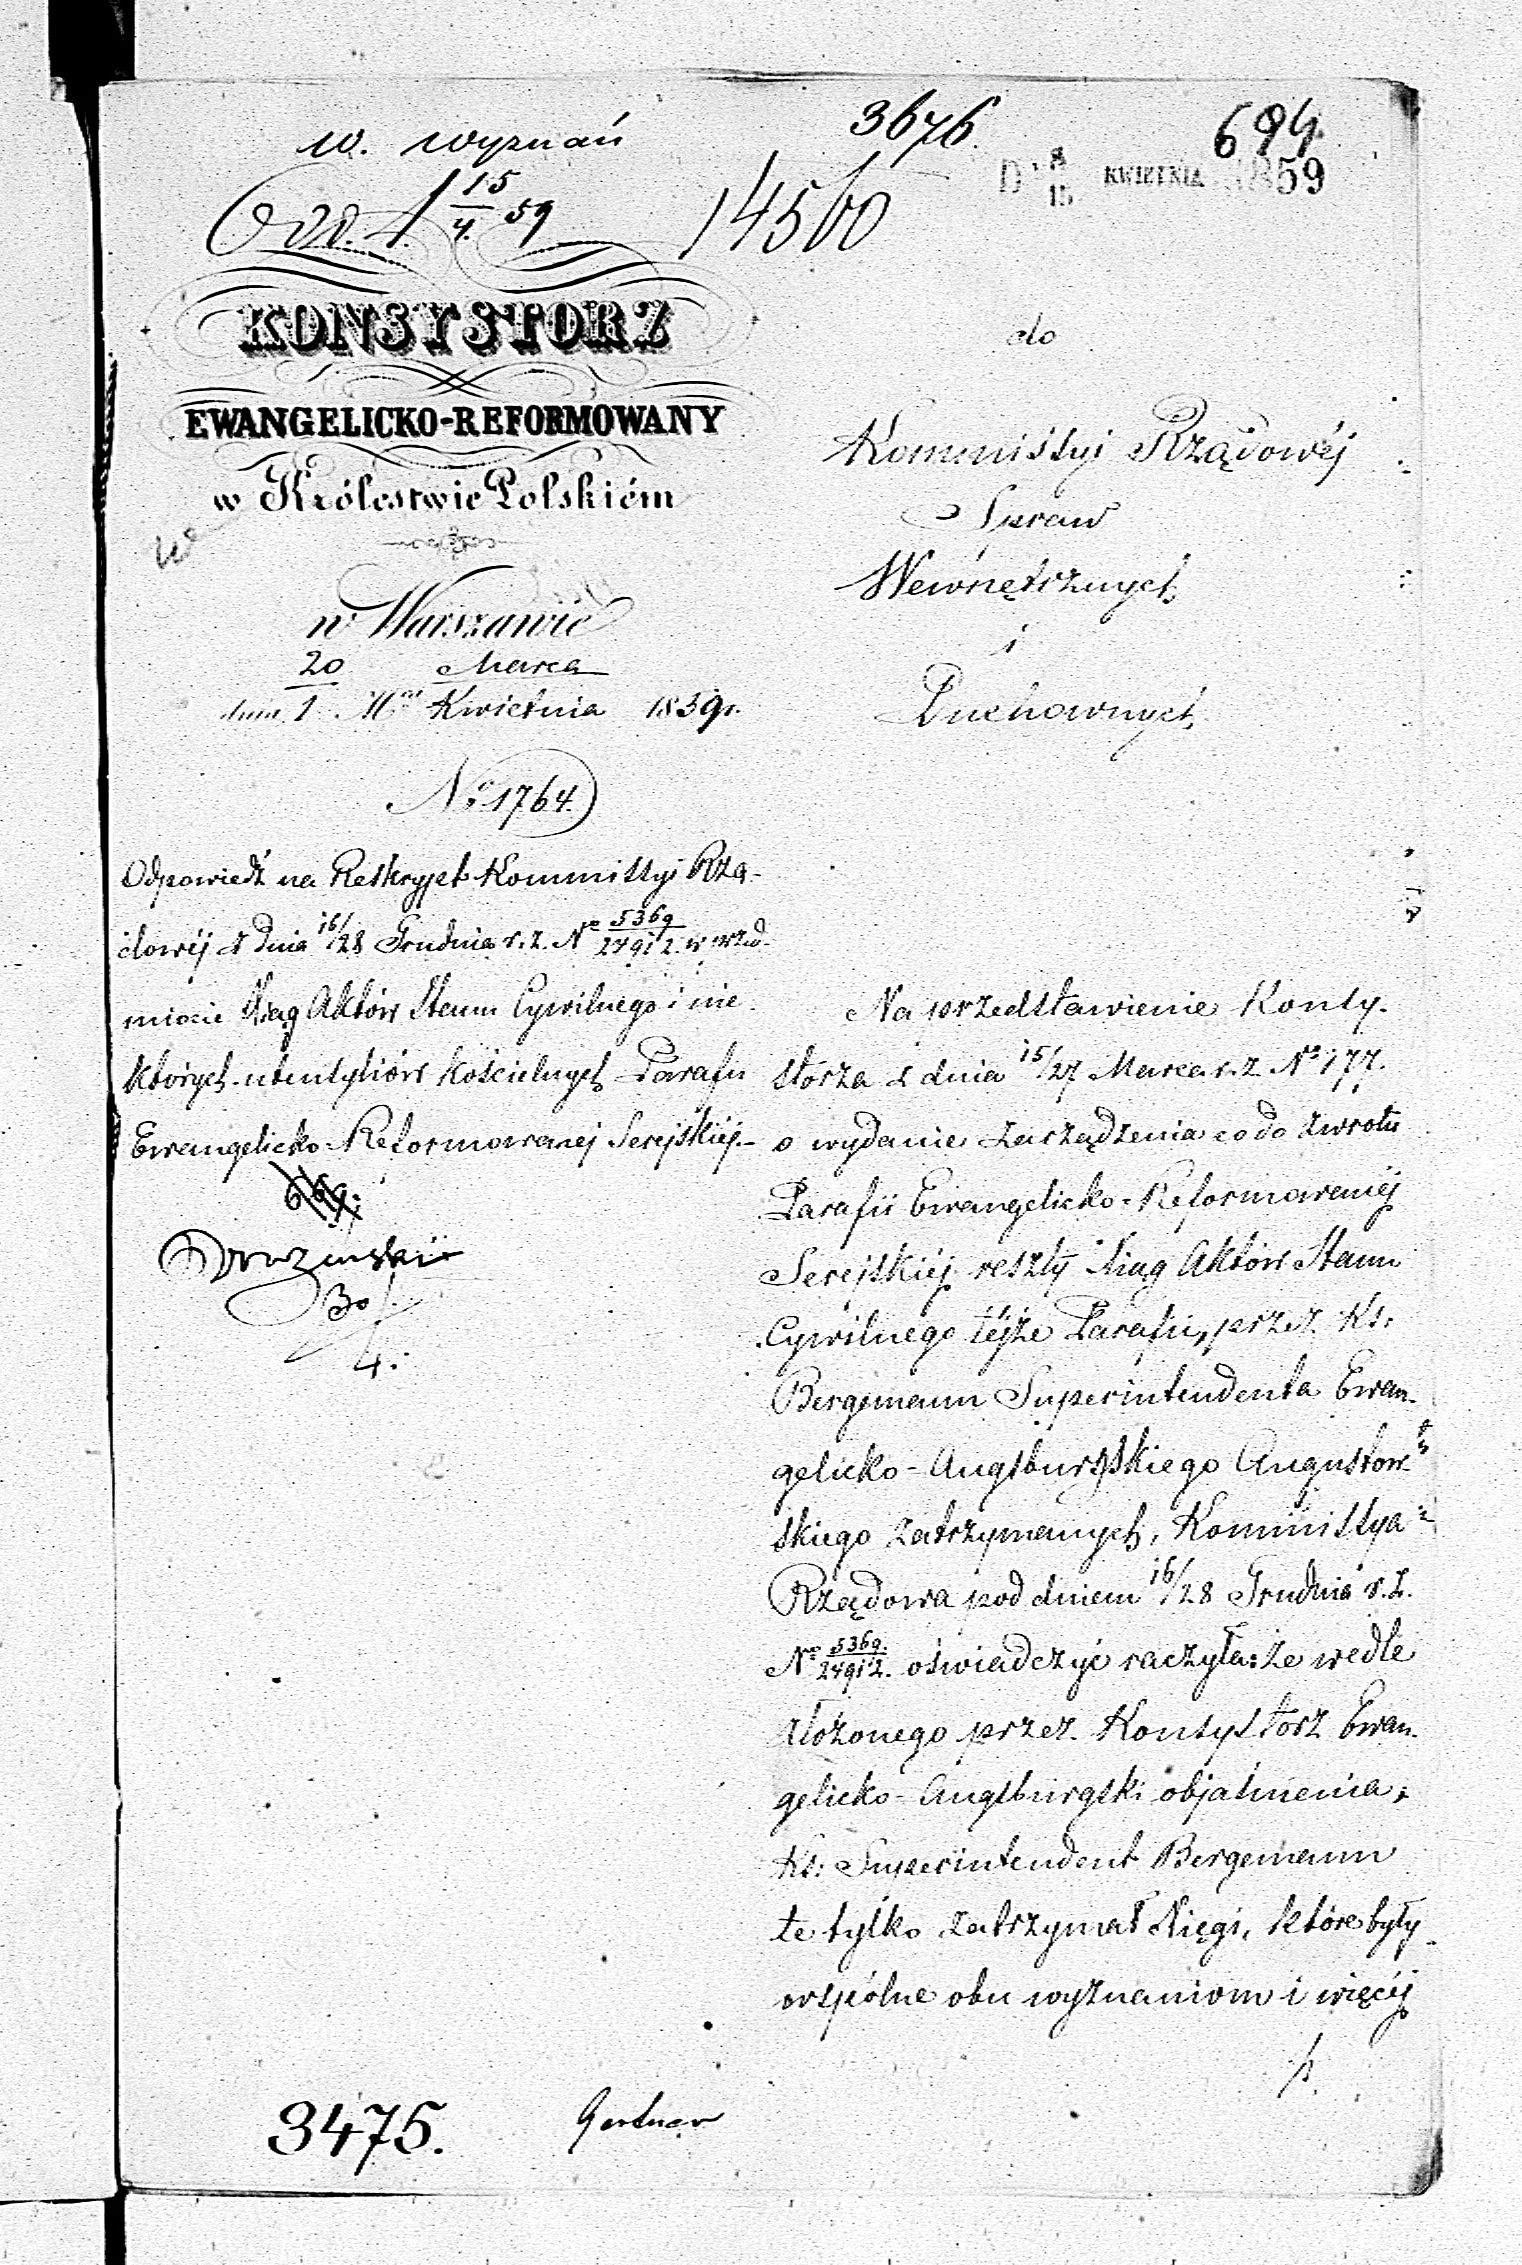 3676.
694
w. wyznań
Odd. 1. 15/4. 59
14560
D. 3/15 KWIETNIA 1859
KONSYSTORZ
EWANGELICKO-REFORMOWANY
w Królestwie Polskiém
w Warszawie
20 Marca
dnia 1 Kwietnia 1859 r.
No 1764.
Odpowiedź na Reskrypt Kommissyi Rzą-
dowéj z dnia 16/28 Grudnia r. z. No 5369/27912. w przed-
miocie Xiąg Aktów Stanu Cywilnego i nie
których utensyliów Kościelnych Parafii
Ewangelicko-Reformowanej Serejskiéj.-
669.
30/
4.
do
Kommissyi Rządowéj
Spraw
Wewnętrznych
i
Duchownych
Na przedstawienie Konsy-
storza z dnia 15/27 Marca r. z. No 177.
o wydanie zarządzenia co do zwrotu
Parafii Ewangelicko-Reformowanéj
Serejskiéj reszty Xiąg Aktów Stanu
Cywilnego téjże Parafii, przez Ks:
Bergemann Superintendenta Ewan-
gelicko-Augsburgskiego Augustow-
skiego zatrzymanych, Kommissya
Rządowa pod dniem 16/28 Grudnia r. z.
No 5369./27912. oświadczyć raczyła: że wedle
złożonego przez Konsystorz Ewan-
gelicko-Augsburgski objaśnienia,
Ks: Superintendent Bergemann
te tylko zatrzymał Xięgi, które były
wspólne obu wyznaniom i więcéj
3475.